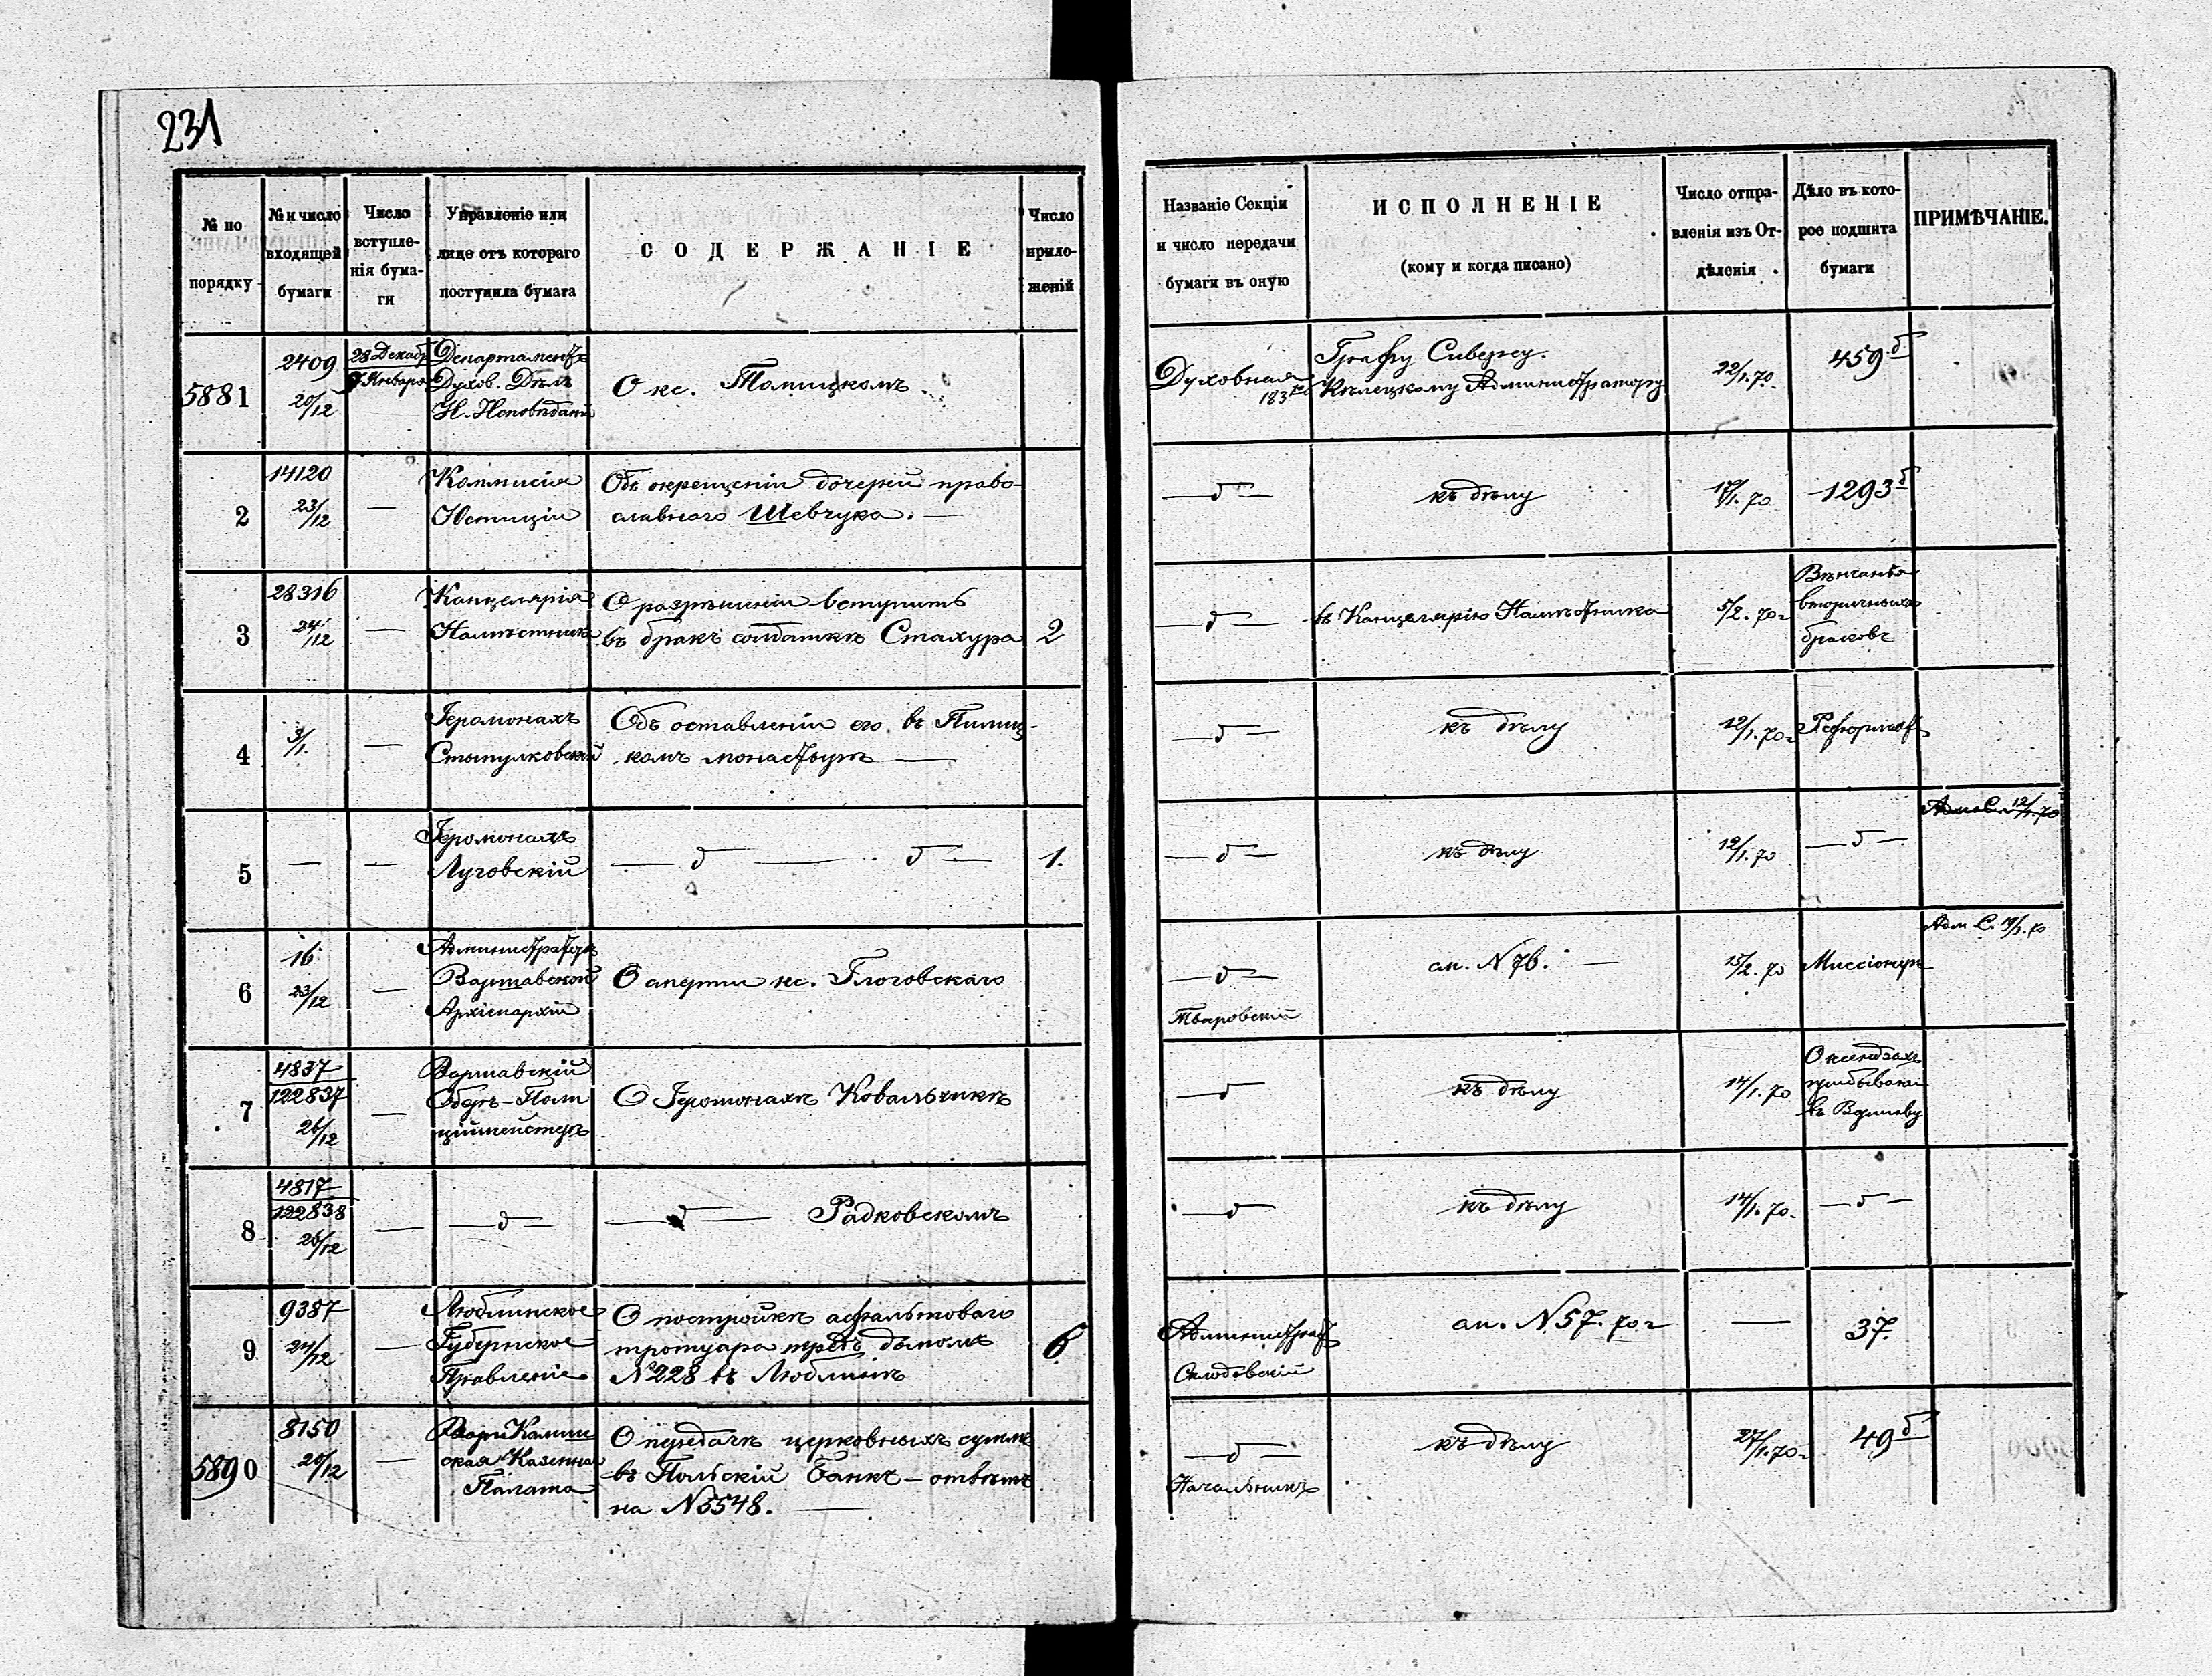 231
№ по порядку
№ и число входящей бумаги
Число вступленія бума-ги
Управленіе или лице отъ котораго поступила бумага
СОДЕРЖАНІЕ
Число прило-женій
Названіе Секціи и число передачи бумаги въ оную
ИСПОЛНЕНІЕ
(кому и когда писано)
Число отпра-вленія изъ От-дѣленія
Дѣло въ кото-рое подшита бумаги
ПРИМѢЧАНІЕ.
5881
2409
20/12
28 Декабр
9 Января
Департаментъ
Духов. Дѣлъ
И. Исповѣданій
О кс. Томицкомъ
Духовная
Графу Сиверсу.
Кѣлецкому Администратору
22/1.70.
459 б
2
14120
23/12
—
Коммисія
Юстиціи
Объ окрещеніи дочерей право-
славнаго Шевчука. —
— д —
къ дѣлу
17/1.70
1293 б
3
28316
24/12
—
Канцелярія
Намѣстника
О разрѣшеніи вступить
въ бракъ солдаткѣ Стахура
2
— д —
въ Канцелярію Намѣстника
5/2.70 г
Вѣнчанья
вторичныхъ
браковъ
4
3/1.
—
Іеромонахъ
Стыпулковскій
Объ оставленіи его въ Пилиц-
комъ монастырѣ —
— д —
къ дѣлу
12/1.70 г
Реформат
5
—
—
Іеромонахъ
Луговскій
— д — д —
1.
— д —
къ дѣлу
12/1.70
— д —
12/1.70
6
16
23/12
—
Администраторъ
Варшавской
Архіепархіи
О смерти кс. Глоговскаго
— д —
Тваровскій
сп. N 76. —
15/2.70
Миссіонер
Адм С. 19/1.70
7
4837
122837
26/12
—
Варшавскій
Оберъ-Поли
ціймейстеръ
О Іеромонахѣ Ковальчикѣ
— д
къ дѣлу
14/1.70
О ксендзахъ
прибывающ
въ Варшаву
8
4817
122838
26/12
—
— д —
— д — Радковскомъ
— д
къ дѣлу
14/1.70.
— д —
9
9387
24/12
—
Люблинское
Губернское
Правленіе
О постройкѣ асфальтоваго
тротуара предъ домомъ
N 228 въ Люблинѣ
6
Администрат
Склодовскій
сп. N 57. 70 г
—
37.
5890
8150
20/12
—
Варш Калиш
ская Казенная
Палата
О передачѣ церковныхъ суммъ
въ Польскій Банкъ — отвѣтъ
на N 5548. —
— д —
Начальникъ
къ дѣлу
27/1.70 г
49 б